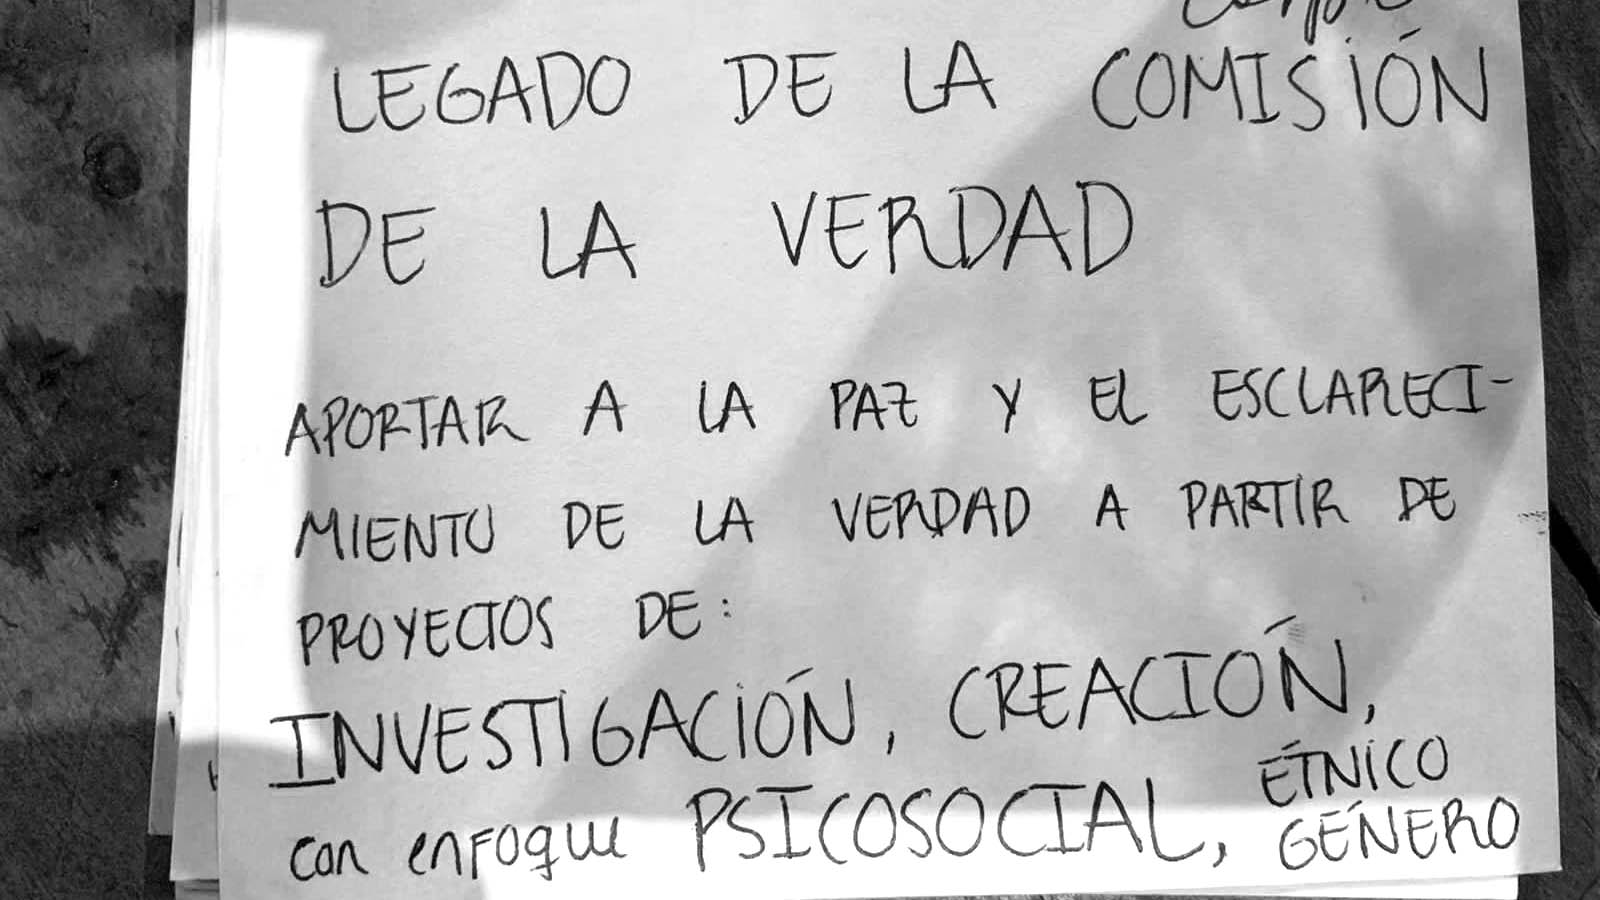 LEGADO DE LA COMISIÓN
DE LA VERDAD
APORTAR A LA PAZ Y EL ESCLARECI-
MIENTO DE LA VERDAD A PARTIR DE
PROYECTOS DE:
INVESTIGACIÓN, CREACIÓN,
con enfoque PSICOSOCIAL, ÉTNICO
GÉNERO